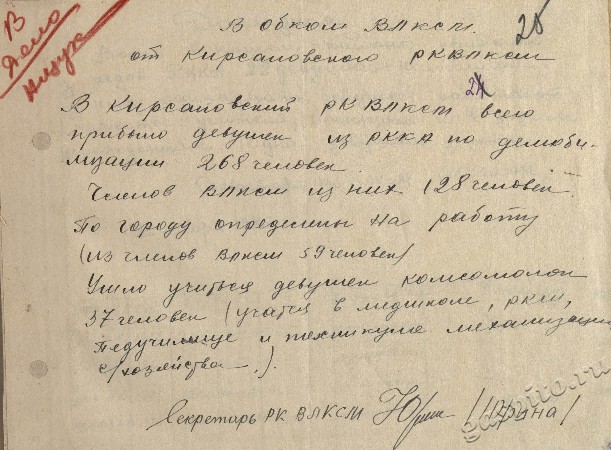 В
Дело
20
В обком ВЛКСМ.
от Кирсановского РКВЛКСМ
24
В Кирсановский РК ВЛКСМ всего
прибыло девушек из РККА по демоби-
лизации 268 человек.
Членов ВЛКСМ из них 128 человек.
По городу определены на работу
(из членов ВЛКСМ 59 человек)
Ушло учиться девушек комсомолок
37 человек (учатся в медшколе,
Педучилище и техникуме механизации
с/хозяйства -.).
Секретарь РК ВЛКСМ /Юрина/
gaspito.ru